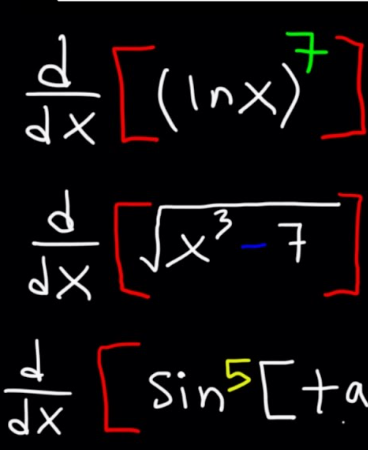 d/dx [(lnx)^7]
d/dx [√(x^3 - 7)]
d/dx [sin^5[ta